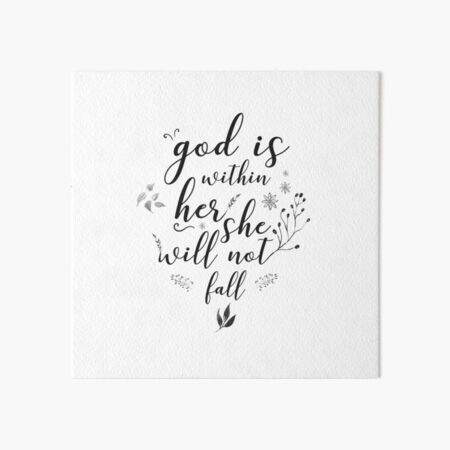 god is
within
her she
will not
fall